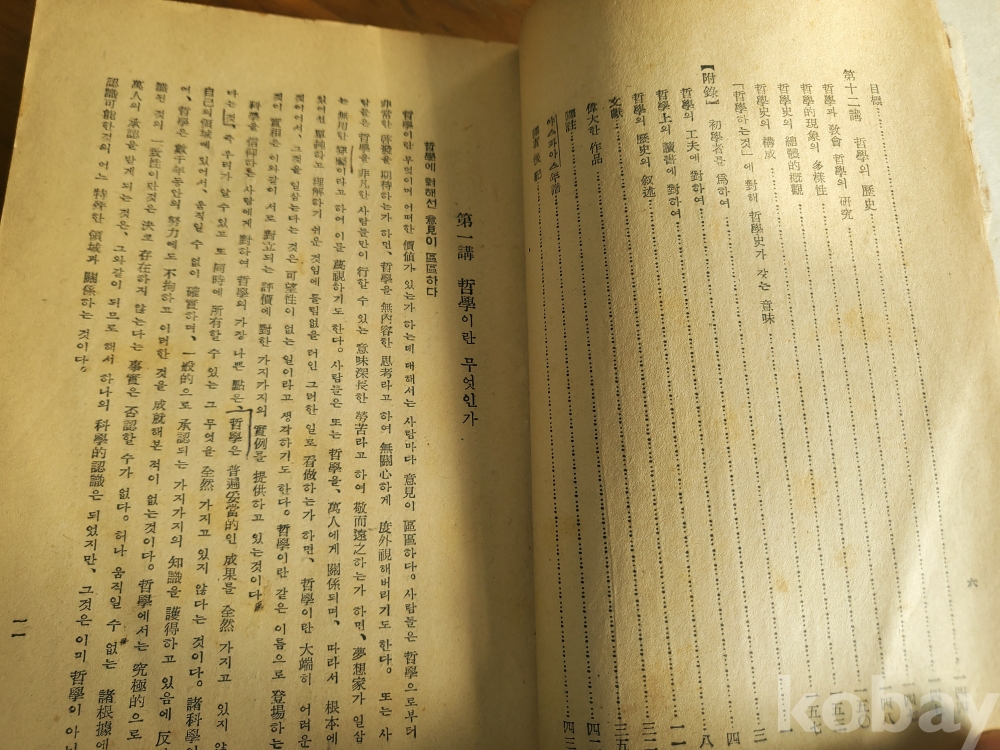 目標
第十二講 哲學의 歷史
哲學과 敎會 哲學의 硏究
哲學的 現象의 多樣性
哲學史의 總體的 槪觀
哲學史의 構成
「哲學하는것」에 對해 哲學史가 갖는 意味
【附錄】 初學者를 爲하여
哲學의 工夫에 對하여
哲學上의 讀書에 對하여
哲學의 歷史의 叙述
文獻
偉大한 作品
譯註
야스파아스年譜
後記
六
第一講 哲學이란 무엇인가
哲學에 對해선 意見이 區區하다
哲學이란 무엇이며 어떠한 價値가 있는가 하는데 대해서는 사람마다 意見이 區區하다。사람들은 哲學으로부터
非常한 啓發을 期待하는가 하면、哲學을 無內容한 思考라고 하여 無關心하게 度外視해버리기도 한다。또는 사
람들은 哲學을 非凡한 사람들만이 行할 수 있는 意味深長한 勞苦라고 하여 敬而遠之하는가 하면、夢想家가 일삼
는 無用한 라고 하여 이를 蔑視하기도 한다。사람들은 또는 哲學을、萬人에게 關係되며、따라서 根本에
있어선 單純하고 理解하기 쉬운 것임에 틀림없을 터인 그러한 일로 看做하는가 하면、哲學이란 大端히 어려운
것이어서、그것을 일삼는다는 것은 可望性이 없는 일이라고 생각하기도 한다。哲學이란 같은 이름으로 登場하는
것이 實相은 이와같이 서로 對立되는 評價에 對한 가지가지의 實例를 提供하고 있는것이다。
科學을 信仰하는 사람에게 對하여 哲學의 가장 나쁜 點은、哲學은 普遍妥當的인 成果를 全然 가지고 있지 않
다는 것、즉 우리가 알 수 있고 또 同時에 所有할 수 있는 그 무엇을 全然 가지고 있지 않다는 것이다。諸科學이
自己의 領域에 있어서、움직일 수 없이 確實하며、一般的으로 承認되는 가지가지의 知識을 獲得하고 있음에 反하
여、哲學은 數千年동안의 努力에도 不拘하고 이러한 것을 成就해본 적이 없는것이다。哲學에서는 究極的으로
識된 것의 一致性이란것은 決코 存在하지 않는다는 事實은 否認할 수가 없다。허나 움직일 수 없는 諸根據에
萬人의 承認을 받게 되는 것은、그와같이 되므로 해서 하나의 科學的 認識은 되었지만、그것은 이미 哲學이 아니
認識可能한것의 어느 特殊한 領域과 關係하는 것이다。
一一
kobay